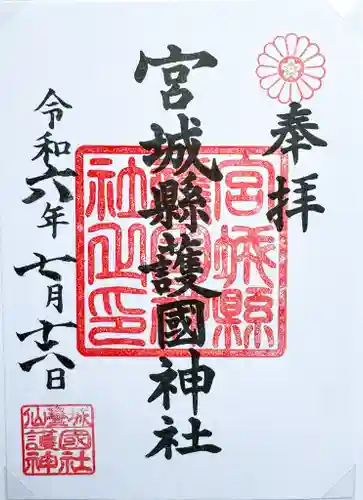 奉拝
宮城縣護國神社
令和六年七月十六日
宮城縣護國神社之印